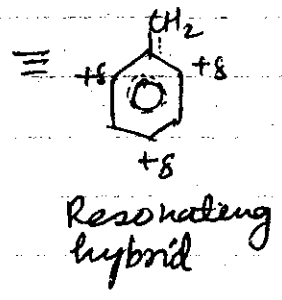 CH2
≡
+δ +δ
+δ
Resonating
hybrid